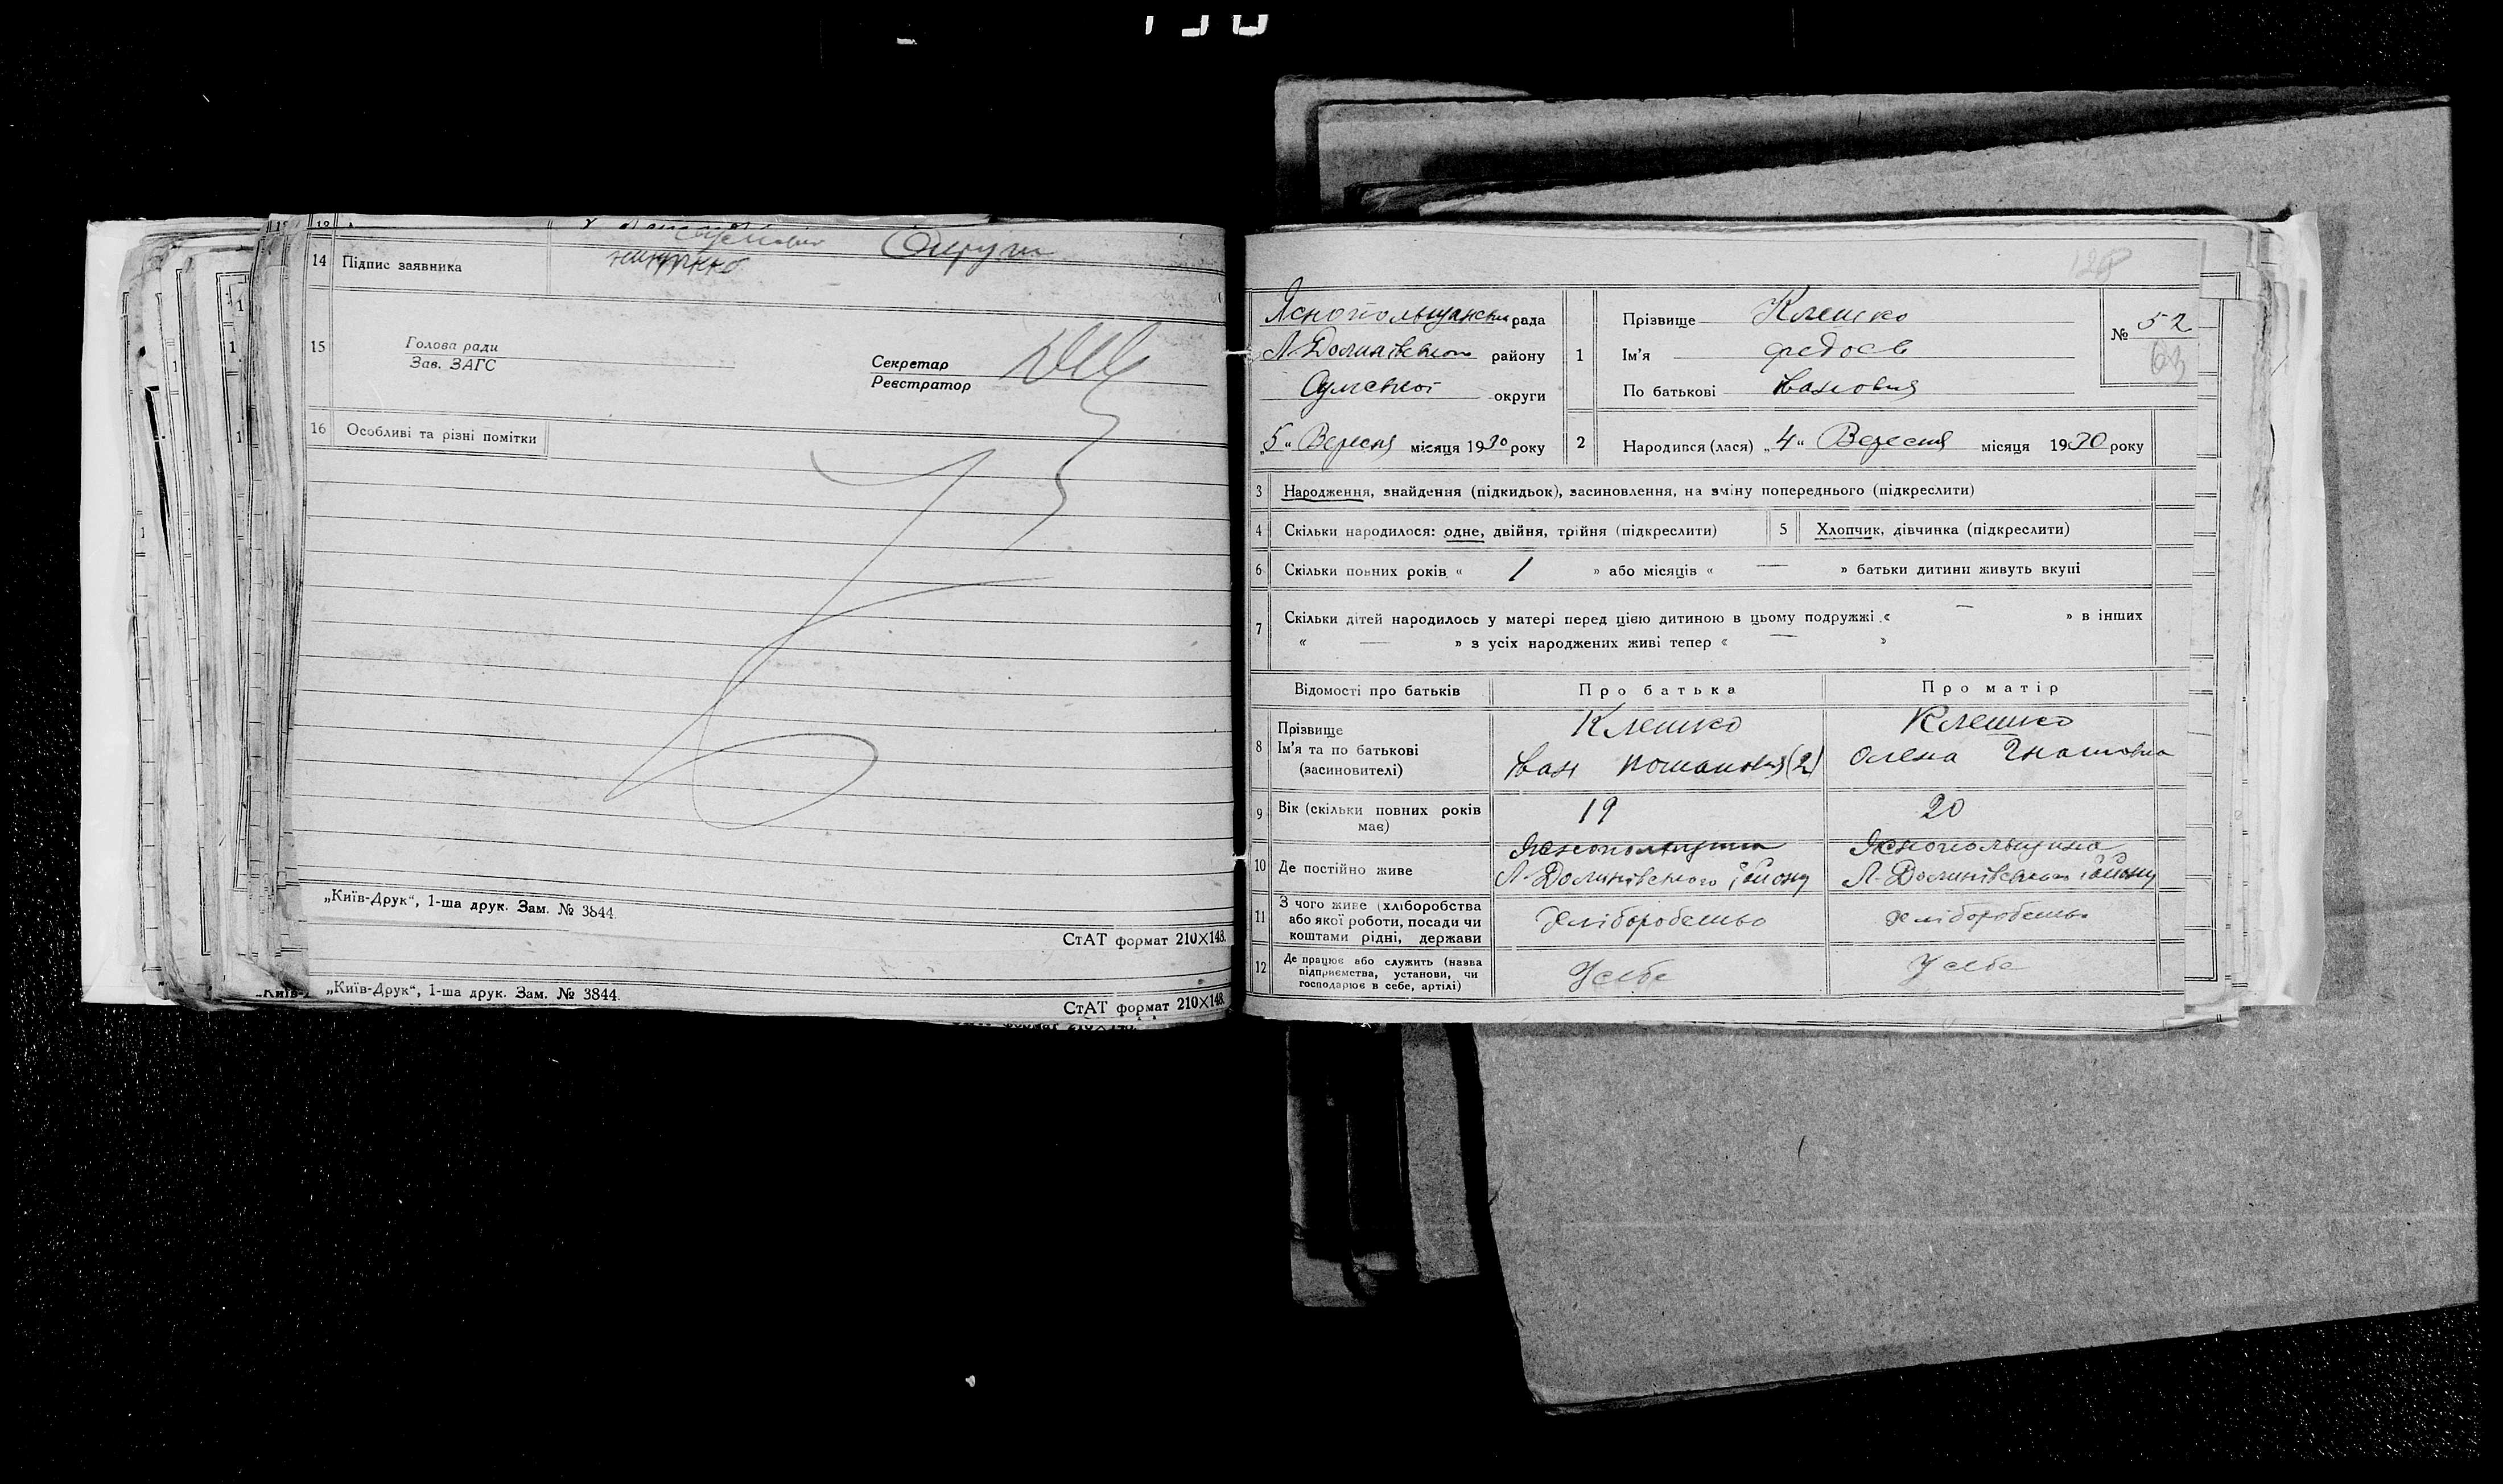 14 Підпис заявника
15 Голова ради
Зав. ЗАГС
Секретар
Реєстратор
16 Особливі та різні помітки
„Київ-Друк“, 1-ша друк. Зам. № 3844.
СтАТ формат 210×148.
„Київ-Друк“, 1-ша друк. Зам. № 3844.
СтАТ формат 210×148.
128
Яснопольщанська рада
Л-Долинівського району
Сумської округи
„5“ Вересня місяця 1930 року
1 Прізвище Клешко
Ім'я Федось
По батькові Іванович
№ 52
63
2 Народився (лася) „4“ Вересня місяця 1930 року
3 Народження, знайдення (підкидьок), засиновлення, на зміну попереднього (підкреслити)
4 Скільки народилося: одне, двійня, трійня (підкреслити)
5 Хлопчик, дівчинка (підкреслити)
6 Скільки повних років « 1 » або місяців « — » батьки дитини живуть вкупі
7 Скільки дітей народилось у матері перед цією дитиною в цьому подружжі « — » в інших
« — » з усіх народжених живі тепер « — »
Відомості про батьків Про батька Про матір
8 Прізвище Клешко Клешко
Ім'я та по батькові Іван (2) Олена Гнатовна
(засиновителі)
9 Вік (скільки повних років має) 19 20
10 Де постійно живе Яснопольщина Яснопольщина
Л-Долинівського району Л-Долинівського району
11 З чого живе (хліборобства або якої роботи, посади чи коштами рідні, держави Хліборобство Хліборобство
12 Де працює або служить (назва підприємства, установи, чи господарює в себе, артілі) У себе У себе